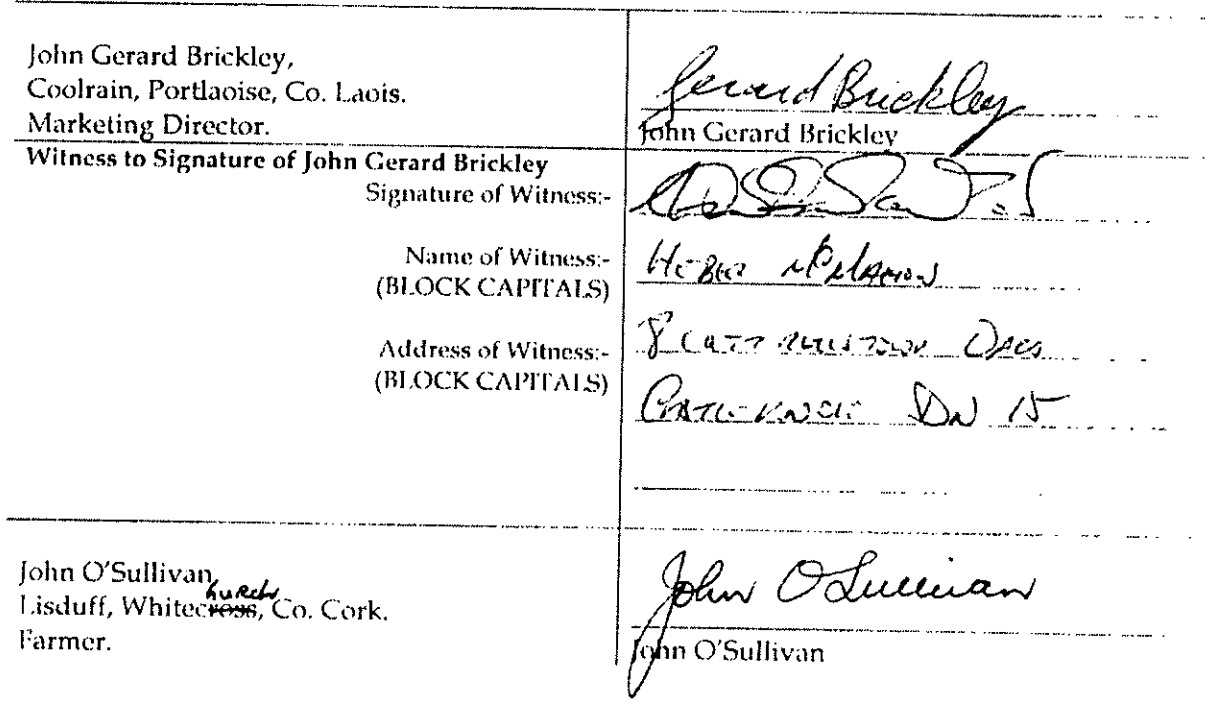 John Gerard Brickley,
Coolrain, Portlaoise, Co. Laois.
Marketing Director.
Gerard Brickley
John Gerard Brickley
Witness to Signature of John Gerard Brickley
Signature of Witness:-
Name of Witness:-
(BLOCK CAPITALS)
HEBER McMAHON
Address of Witness:-
(BLOCK CAPITALS)
8
CASTLEKNOCK DN 15
John O'Sullivan,
hurch
Lisduff, Whitecross, Co. Cork.
Farmer.
John O Sullivan
John O'Sullivan